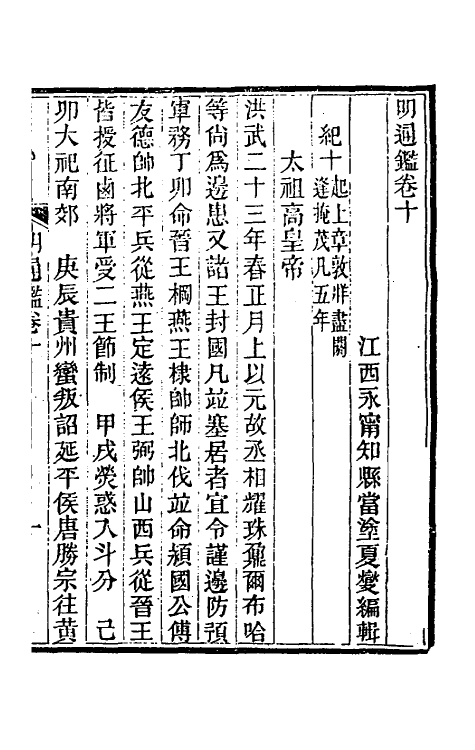 明通鑑卷十
江西永甯知縣當塗夏燮編輯
紀十起上章敦牂盡閼
逢掩茂凡五年
太祖高皇帝
洪武二十三年春正月上以元故丞相耀珠鼐爾布哈
等尙爲邊患又諸王封國凡竝塞居者宜令謹邊防預
軍務丁卯命晉王棡燕王棣帥師北伐竝命潁國公傅
友德帥北平兵從燕王定遠侯王弼帥山西兵從晉王
皆授征鹵將軍受二王節制　甲戌熒惑入斗分　己
卯大祀南郊　庚辰貴州蠻叛詔延平侯唐勝宗往黃
明通鑑卷十
一